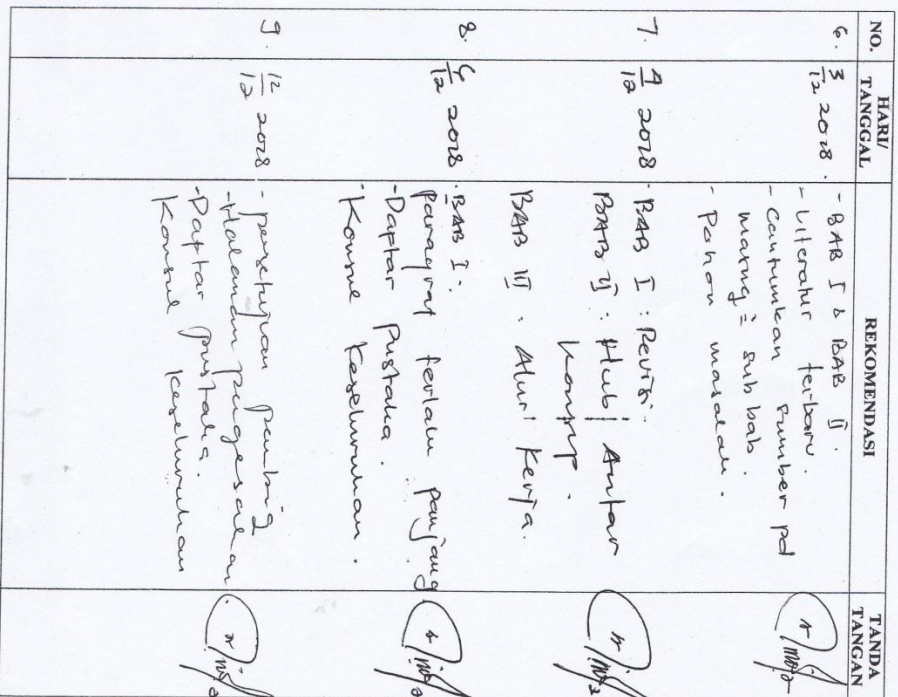 NO.
HARI/
TANGGAL
REKOMENDASI
TANDA
TANGAN
6.
3/12 2018
- BAB I & BAB II.
- Literatur terbaru.
- Cantumkan sumber pd
masing² sub bab.
- Pohon masalah.
7.
4/12 2018
- BAB I : Revisi.
BAB II : Hub| Antar
Konsep.
BAB III. Alur Kerja.
8.
6/12 2018
- BAB I :
Paragraf terlalu panjang
- Daptar Pustaka.
- Konsul Keseluruhan.
9.
12/12 2018
- persetujuan
- Halaman pengesahan
- Daptar pustaka.
Konsul keseluruhan